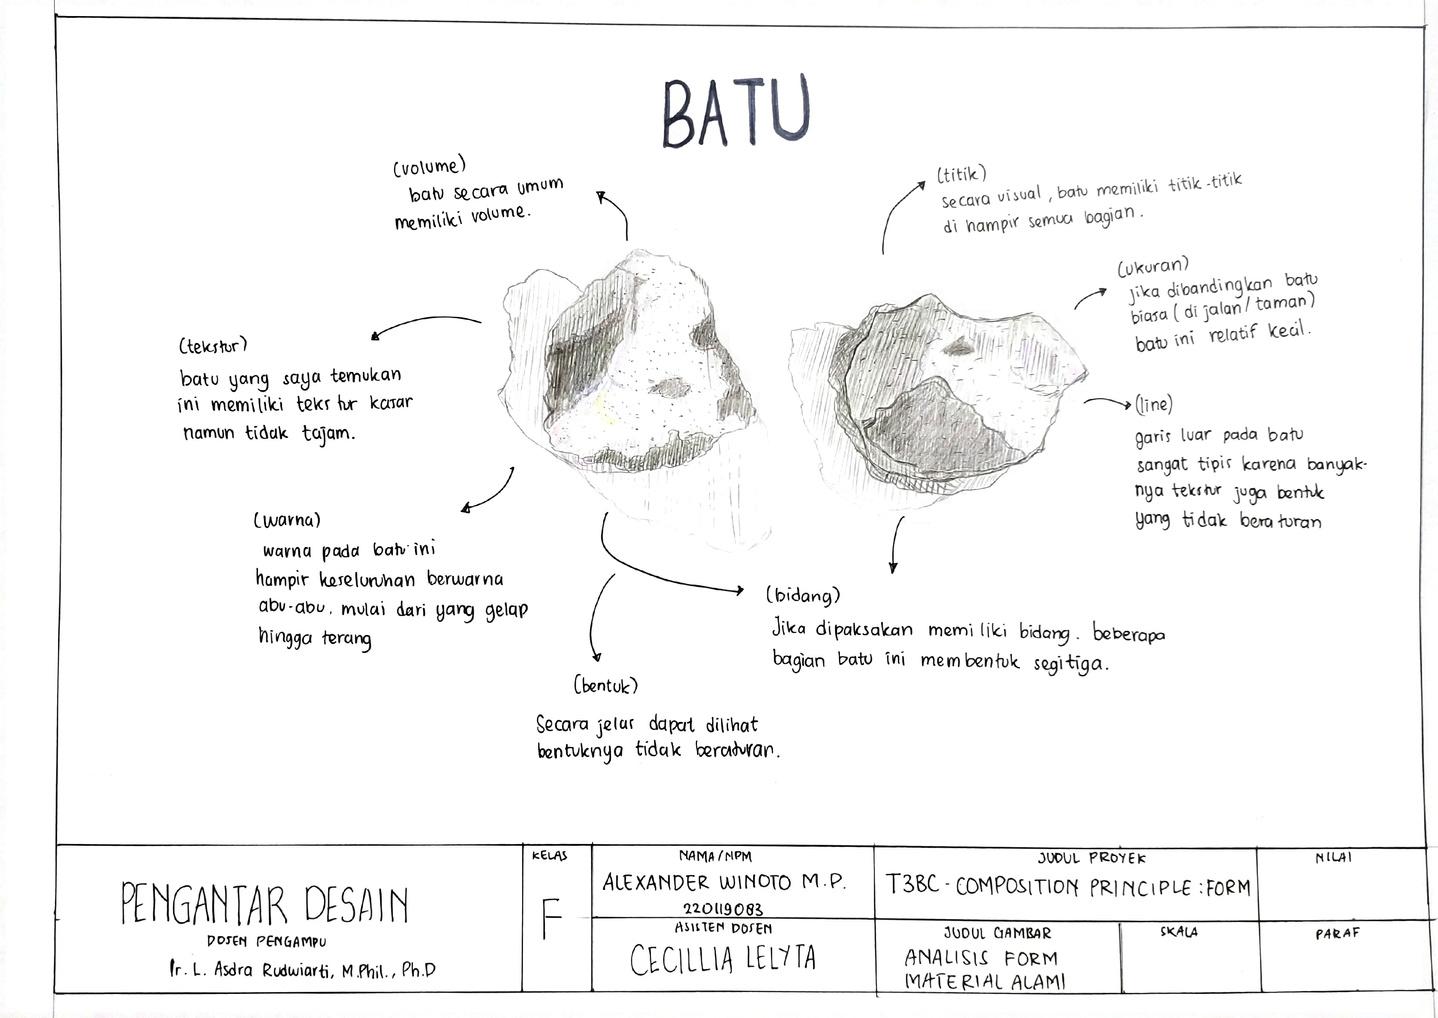 BATU
(volume)
batu secara umum
memiliki volume.
(titik)
secara visual, batu memiliki titik-titik
di hampir semua bagian.
(ukuran)
jika dibandingkan batu
biasa (di jalan/taman)
batu ini relatif kecil.
(tekstur)
batu yang saya temukan
ini memiliki tekstur kasar
namun tidak tajam.
(line)
garis luar pada batu
sangat tipis karena banyak-
nya tekstur juga bentuk
yang tidak beraturan
(warna)
warna pada batu ini
hampir keseluruhan berwarna
abu-abu. mulai dari yang gelap
hingga terang
(bidang)
Jika dipaksakan memiliki bidang. beberapa
bagian batu ini membentuk segitiga.
(bentuk)
Secara jelas dapat dilihat
bentuknya tidak beraturan.
PENGANTAR DESAIN
DOSEN PENGAMPU
Ir. L. Asdra Rudwiarti, M.Phil., Ph.D
KELAS
F
NAMA/NPM
ALEXANDER WINOTO M.P.
220119083
ASISTEN DOSEN
CECILLIA LELYTA
JUDUL PROYEK
T3BC - COMPOSITION PRINCIPLE : FORM
JUDUL GAMBAR
ANALISIS FORM
MATERIAL ALAMI
SKALA
NILAI
PARAF